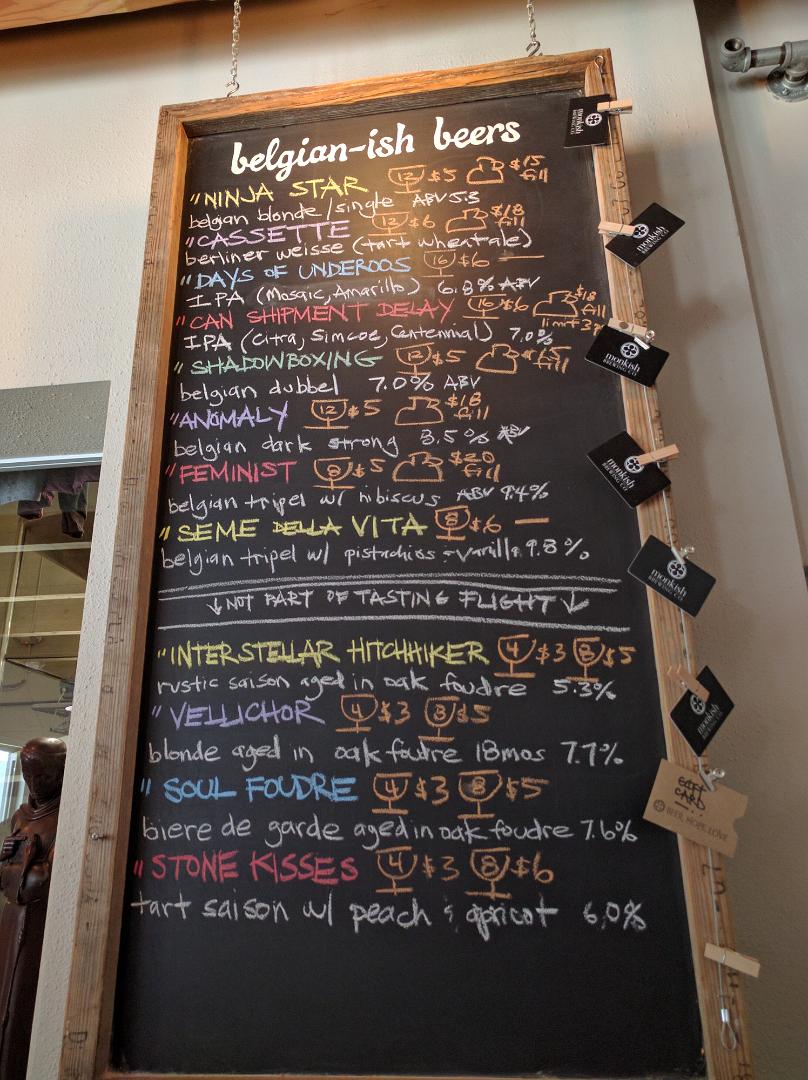 belgian-ish beers
"NINJA STAR 12 $5 $15 fill
belgian blonde/single ABV 5.3
"CASSETTE 12 $6 $18 fill
berliner weisse (tart wheat ale)
"DAYS OF UNDEROOS 16 $6 —
IPA (Mosaic, Amarillo) 6.8% ABV
"CAN SHIPMENT DELAY 16 $6 $18 fill limit 3
IPA (Citra, Simcoe, Centennial) 7.0%
"SHADOWBOXING 12 $5 $15 fill
belgian dubbel 7.0% ABV
"ANOMALY 12 $5 $18 fill
belgian dark strong 8.5% ABV
"FEMINIST 8 $5 $20 fill
belgian tripel w/ hibiscus ABV 9.4%
"SEME DELLA VITA 8 $6 —
belgian tripel w/ pistachios + vanilla 9.8%
↓ NOT PART OF TASTING FLIGHT ↓
"INTERSTELLAR HITCHHIKER 4 $3 8 $5
rustic saison aged in oak foudre 5.3%
"VELLICHOR 4 $3 8 $5
blonde aged in oak foudre 18mos 7.7%
"SOUL FOUDRE 4 $3 8 $5
biere de garde aged in oak foudre 7.6%
"STONE KISSES 4 $3 8 $6
tart saison w/ peach & apricot 6.0%
monkish
BREWING CO.
monkish
BREWING CO.
monkish
BREWING CO.
monkish
BREWING CO.
monkish
BREWING CO.
monkish
BREWING CO.
GIFT
CARD
BEER, HOPE, LOVE